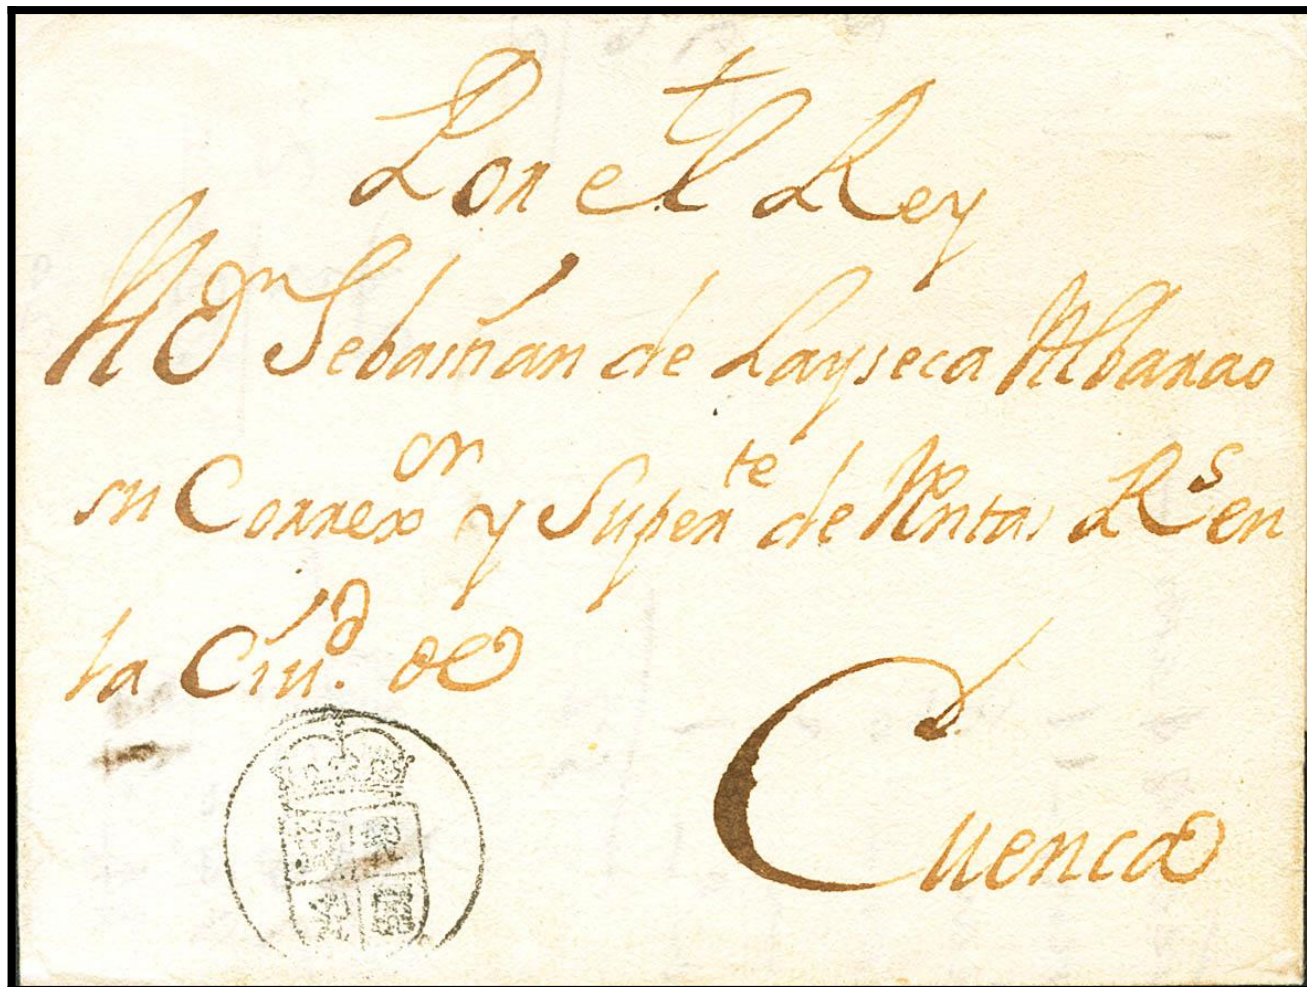 Por el Rey
A Dn Sebastián de Layseca Albarao
su Correxor y Superte de Rentas Rs en
la Ciud. de
Cuenca